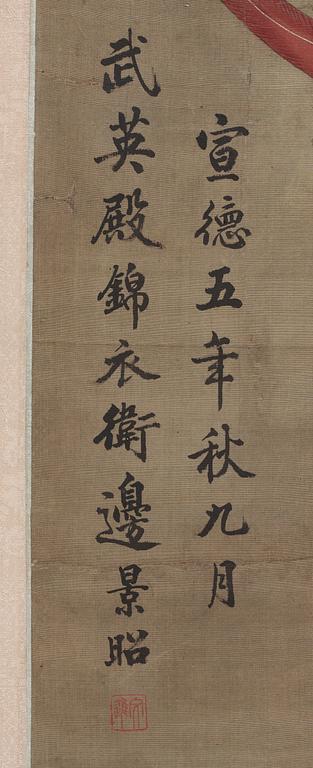 宣德五年秋九月
武英殿錦衣衛邊景昭